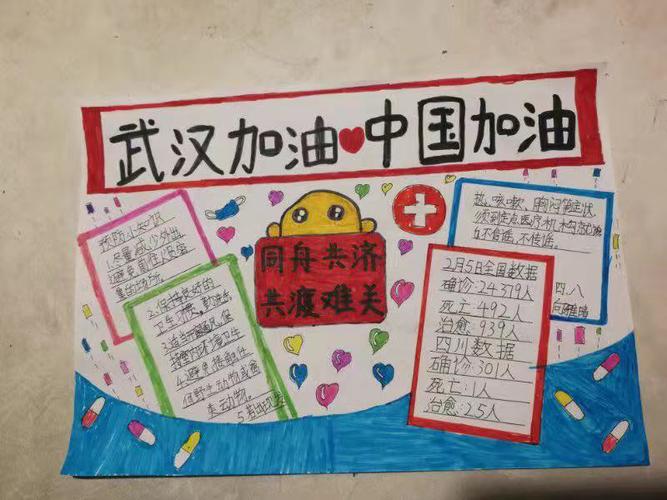 武汉加油❤中国加油
预防小知识
1.尽量减少外出
避免前往人员密
集的场所。
2.保持良好的
卫生习惯,勤洗手
3.适当开窗通风,保
持室内环境卫生
4.避免接触任
何野生动物或禽
类动物。
5.若出现发
同舟共济
共渡难关
热、咳嗽、胸闷等症状,
须到定点医疗机构就诊
6.不信谣、不传谣。
2月5日全国数据
确诊:24379人
死亡:492人
治愈:939人
四川数据
确诊:301人
死亡:1人
治愈:25人
四.八